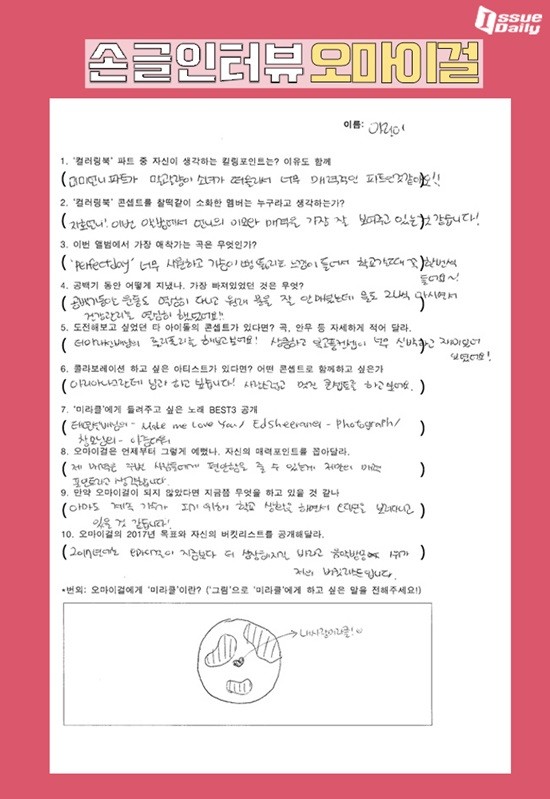 Issue Daily
손글인터뷰 오마이걸
이름: 아린이
1. '컬러링북' 파트 중 자신이 생각하는 킬링포인트는? 이유도 함께
( 미미언니파트가 말괄량이 소녀가 떠올라서 너무 매력적인 파트인것같아요!! )
2. '컬러링북' 콘셉트를 찰떡같이 소화한 멤버는 누구라고 생각하는가?
( 지호언니! 이번 앨범에서 언니의 미모와 매력을 가장 잘 보여주고 있는것 같습니다! )
3. 이번 앨범에서 가장 애착가는 곡은 무엇인가?
( 'Perfectday' 너무 상큼하고 가슴이 뻥 뚫리는 느낌이 들어서 학교갈때 꼭 한번씩
들어요~! )
4. 공백기 동안 어떻게 지냈나. 가장 빠져있었던 것은 무엇?
( 공백기동안 운동도 열심히 다니고 원래 물을 잘 안마셨는데 물도 2L씩 마시면서
건강관리를 열심히 했었어요!! )
5. 도전해보고 싶었던 타 아이돌의 콘셉트가 있다면? 곡, 안무 등 자세하게 적어 달라.
( 티아라선배님의 롤리폴리를 해보고싶어요! 상큼하고 복고풍컨셉이 너무 신박하고 재미있어
보였어요! )
6. 콜라보레이션 하고 싶은 아티스트가 있다면? 어떤 콘셉트로 함께하고 싶은가
( 아리아나그란데 님과 하고 싶습니다! 사랑스럽고 멋진 콘셉트를 하고싶어요. )
7. '미라클'에게 들려주고 싶은 노래 BEST3 공개
( 태연선배님의 - Make me Love You / Edsheeran의 - Photograph /
창모님의 - 아름다워 )
8. 오마이걸은 언제부터 그렇게 예뻤나. 자신의 매력포인트를 꼽아달라.
( 제 매력은 주변 사람들에게 편안함을 줄 수 있는게 저만의 매력
포인트라고 생각합니다. )
9. 만약 오마이걸이 되지 않았다면 지금쯤 무엇을 하고 있을 것 같나
( 아마도 계속 가수가 되기 위해 학교 생활을 하면서 오디션을 보러다니고
있을 것 같습니다! )
10. 오마이걸의 2017년 목표와 자신의 버킷리스트를 공개해달라.
( 2017년에는 오마이걸이 지금보다 더 성장해지길 바라고 음악방송에서 1위가
저의 버킷리스트입니다. )
*번외: 오마이걸에게 '미라클'이란? ('그림'으로 '미라클'에게 하고 싶은 말을 전해주세요!)
내사랑미라클!♡